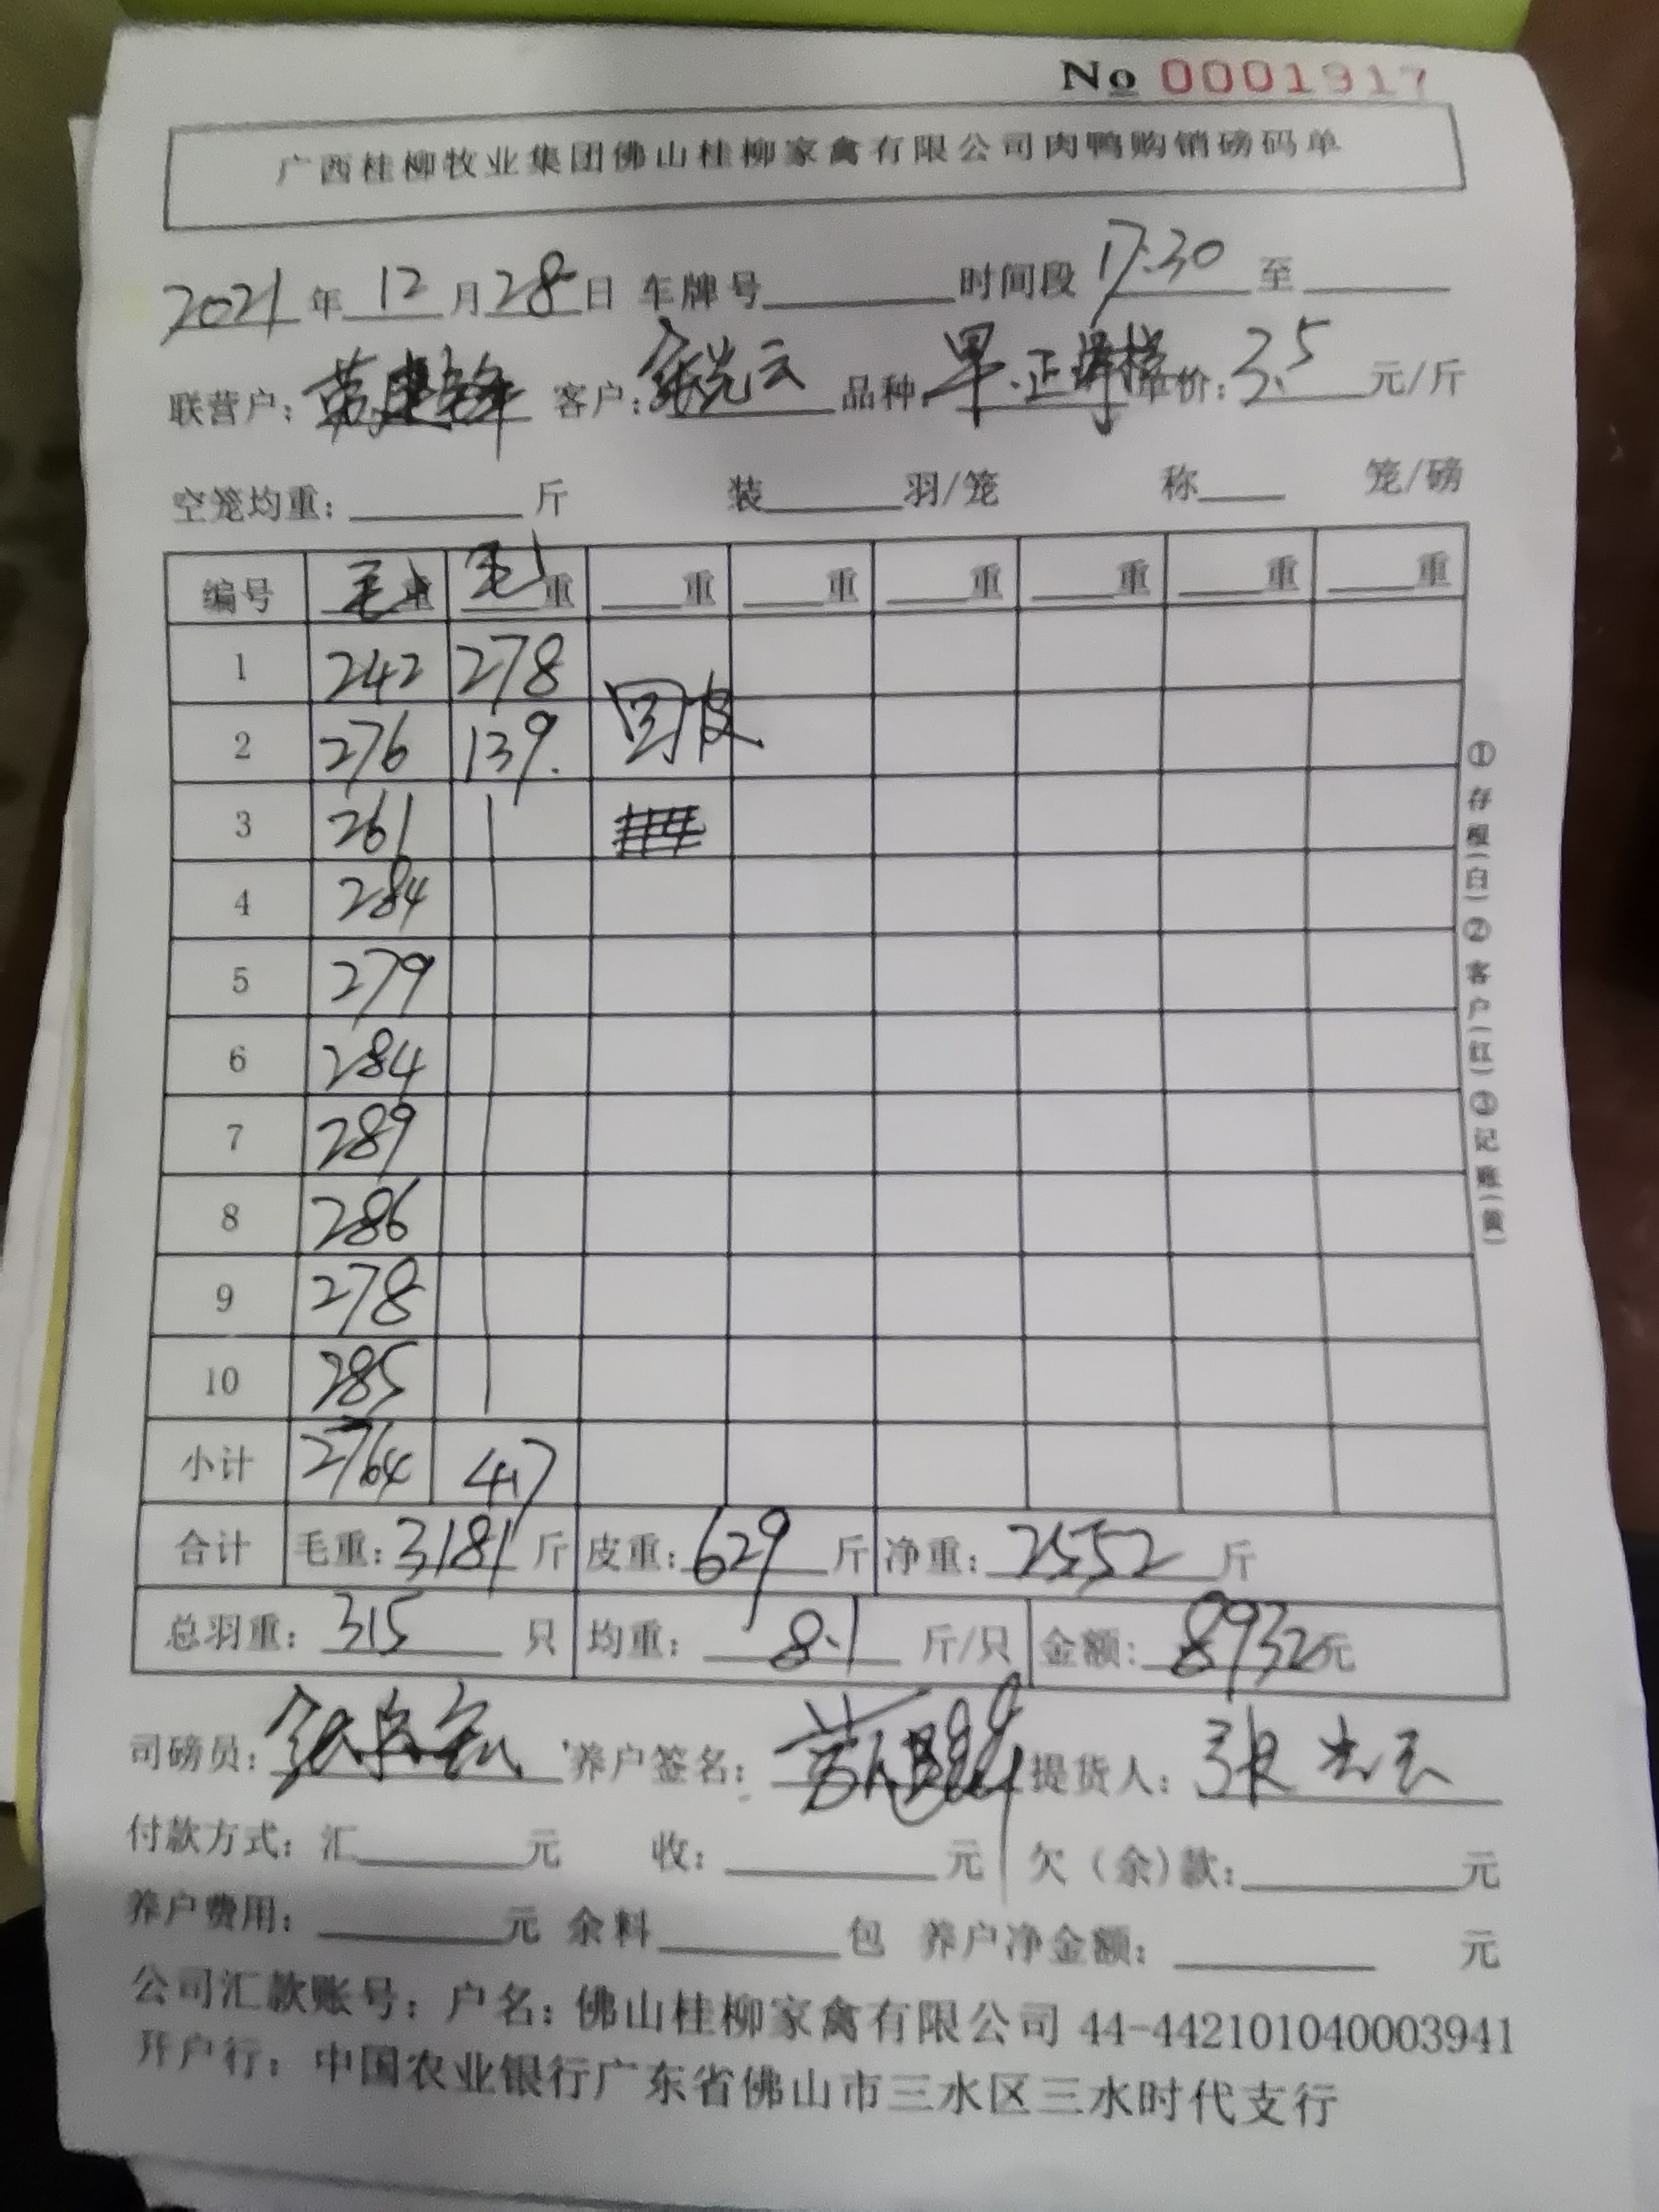 No 0001917
广西桂柳牧业集团佛山桂柳家禽有限公司肉鸭购销磅码单
2021 年 12 月 28 日 车牌号 时间段 17:30 至
联营户: 客户: 品种: 单价: 3.5 元/斤
空笼均重: 斤 装 羽/笼 称 笼/磅
编号 毛重 毛重 重 重 重 重 重 重
1 242 278
2 276 139. 回皮
3 261
4 284
5 279
6 284
7 289
8 286
9 278
10 285
小计 2764 417
合计 毛重: 3181 斤 皮重: 629 斤 净重: 2552 斤
总羽重: 315 只 均重: 8.1 斤/只 金额: 8932元
司磅员: 养户签名: 提货人: 张
付款方式: 汇 元 收: 元 欠(余)款: 元
养户费用: 元 余料 包 养户净金额: 元
公司汇款账号: 户名: 佛山桂柳家禽有限公司 44-442101040003941
开户行: 中国农业银行广东省佛山市三水区三水时代支行
①存根(白)②客户(红)③记账(黄)